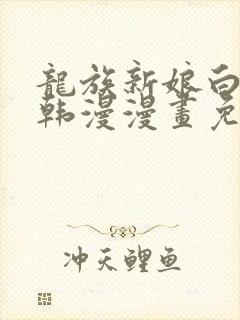 龍族新娘白
韩漫漫畫免
冲天鲤鱼